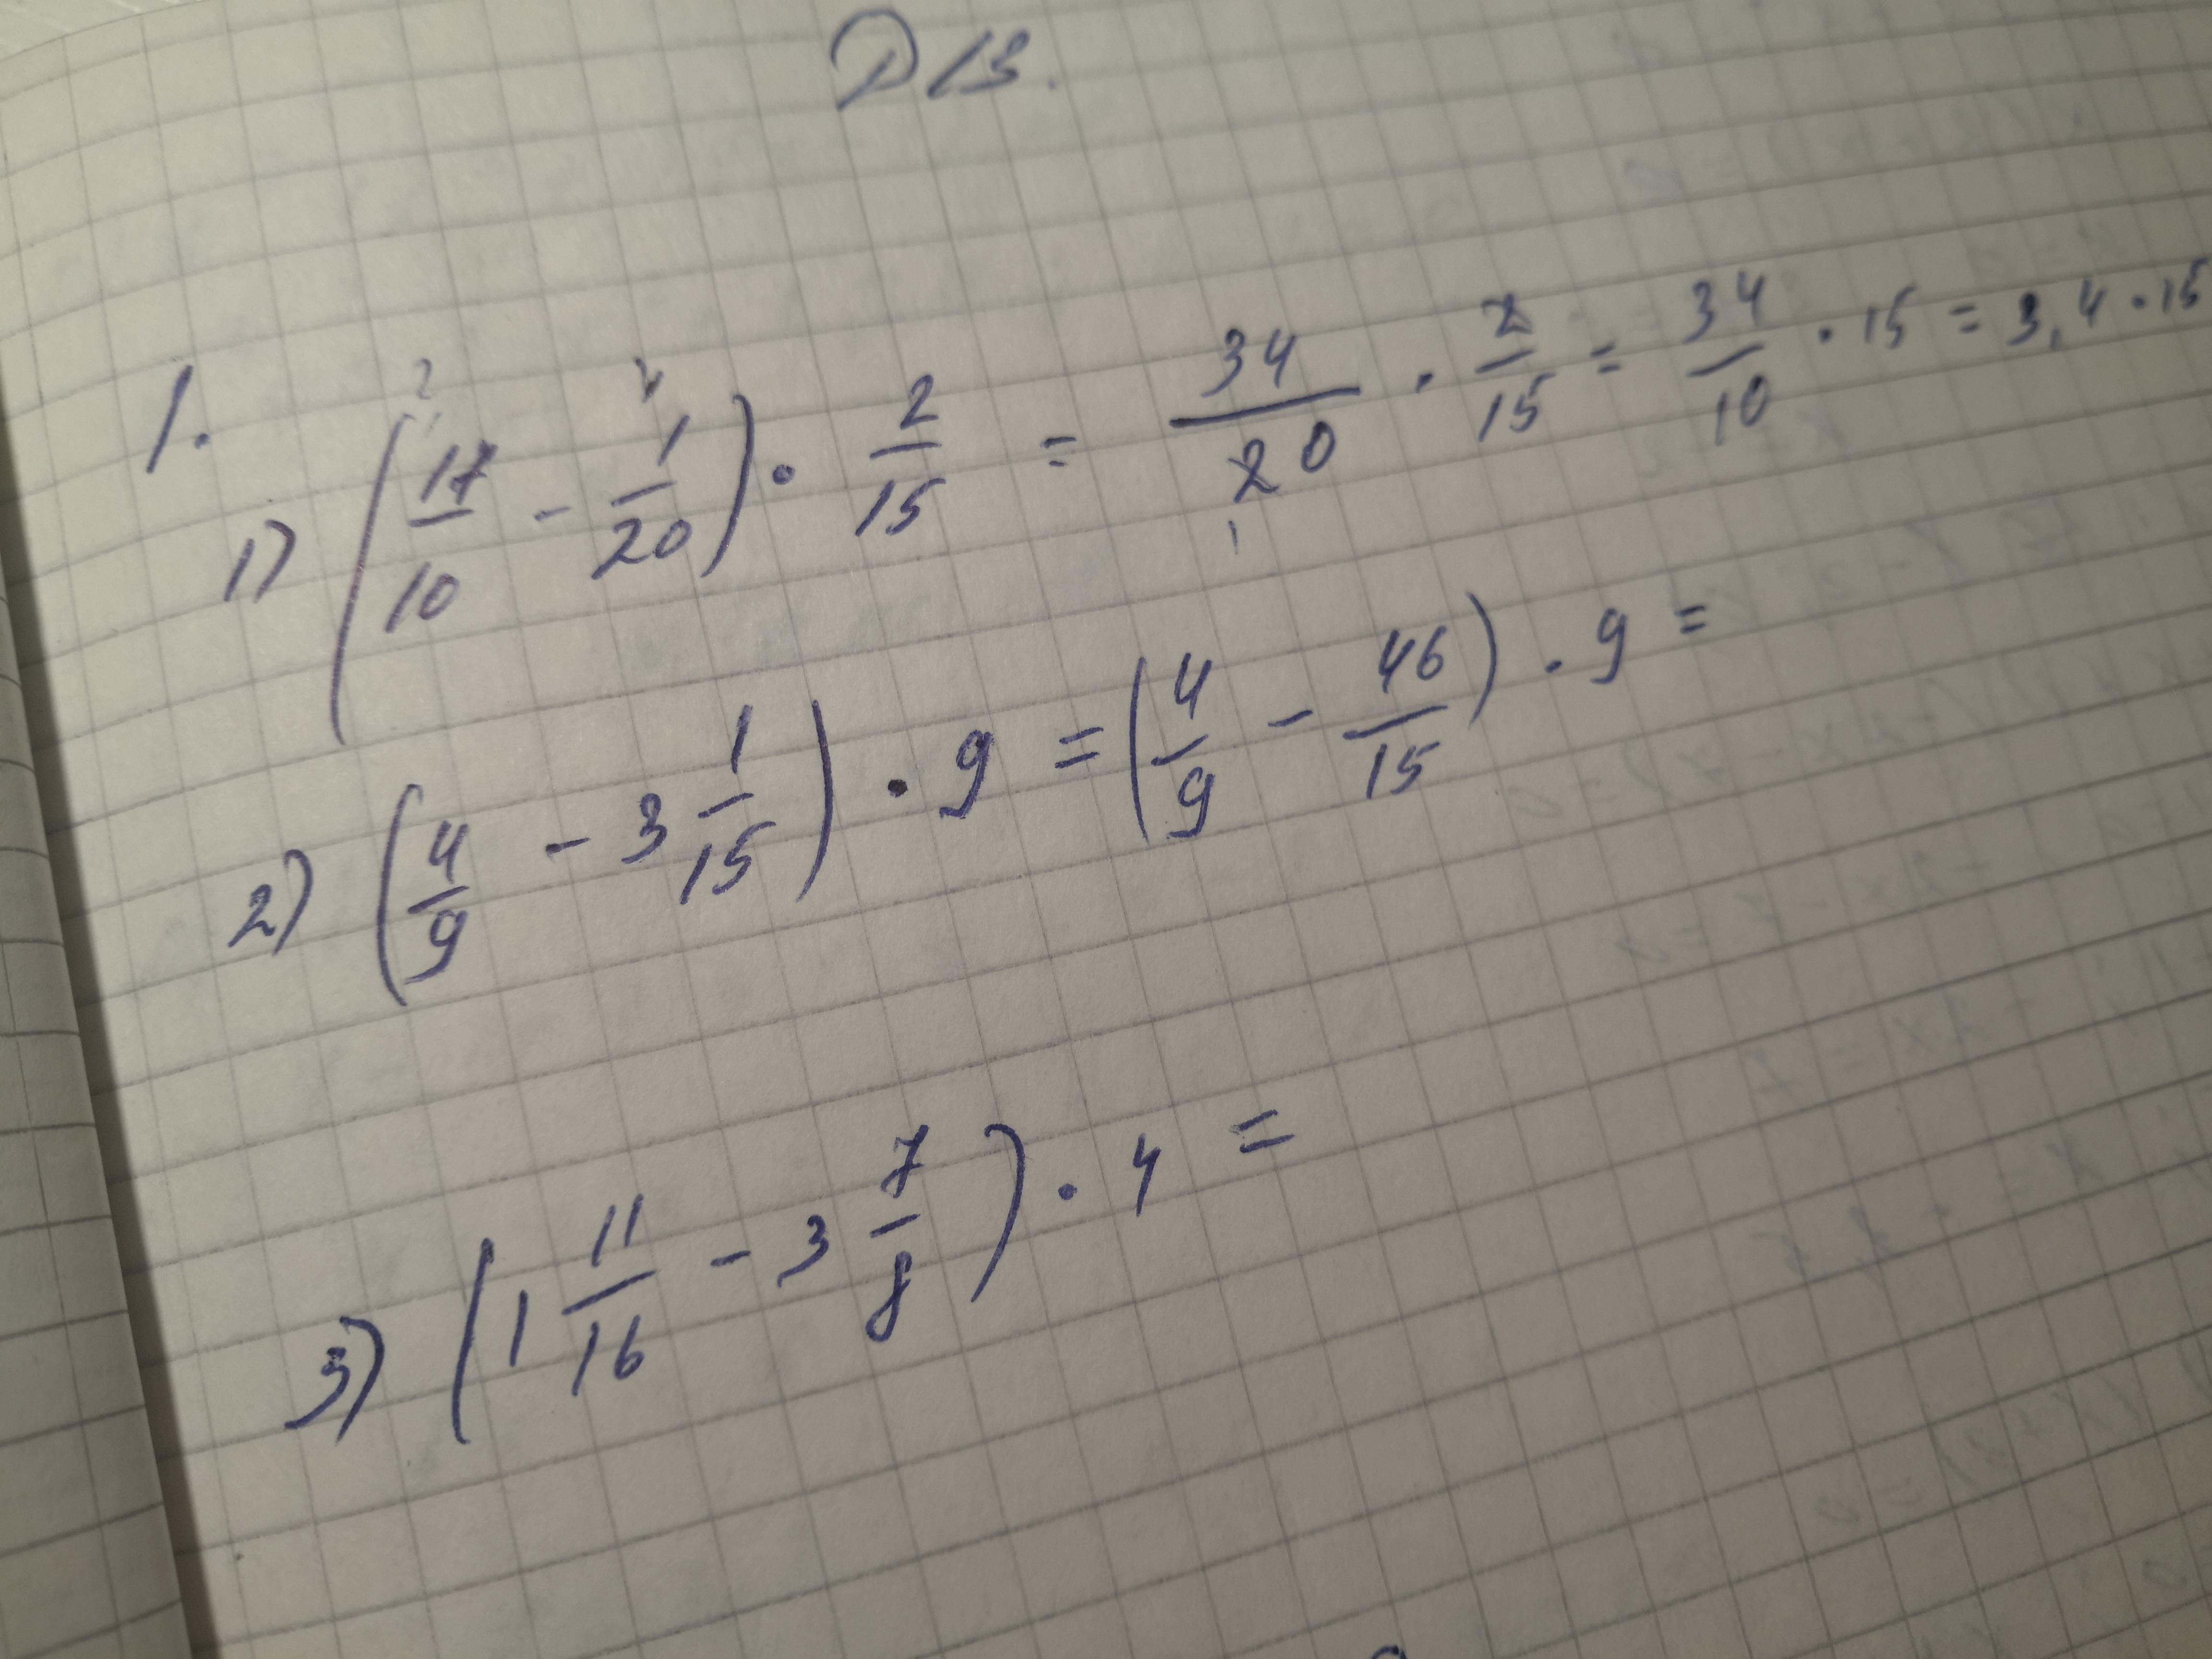 Д/З.
1.
1) (17/10 - 1/20) · 2/15 = 34/20 · 2/15 = 34/10 · 15 = 3,4 · 15
2) (4/9 - 3 1/15) · 9 = (4/9 - 46/15) · 9 =
3) (1 11/16 - 3 7/8) · 4 =